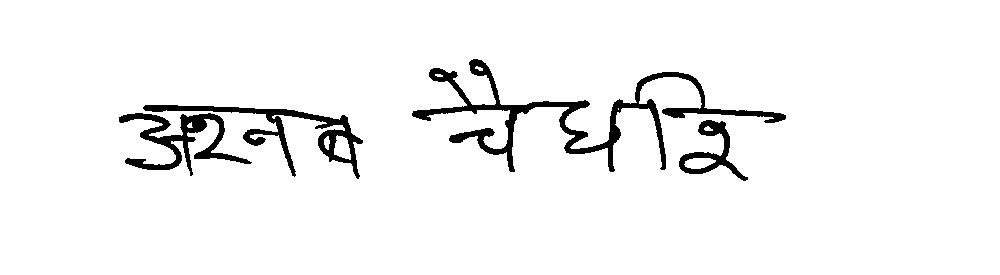 अरनब चैधरि